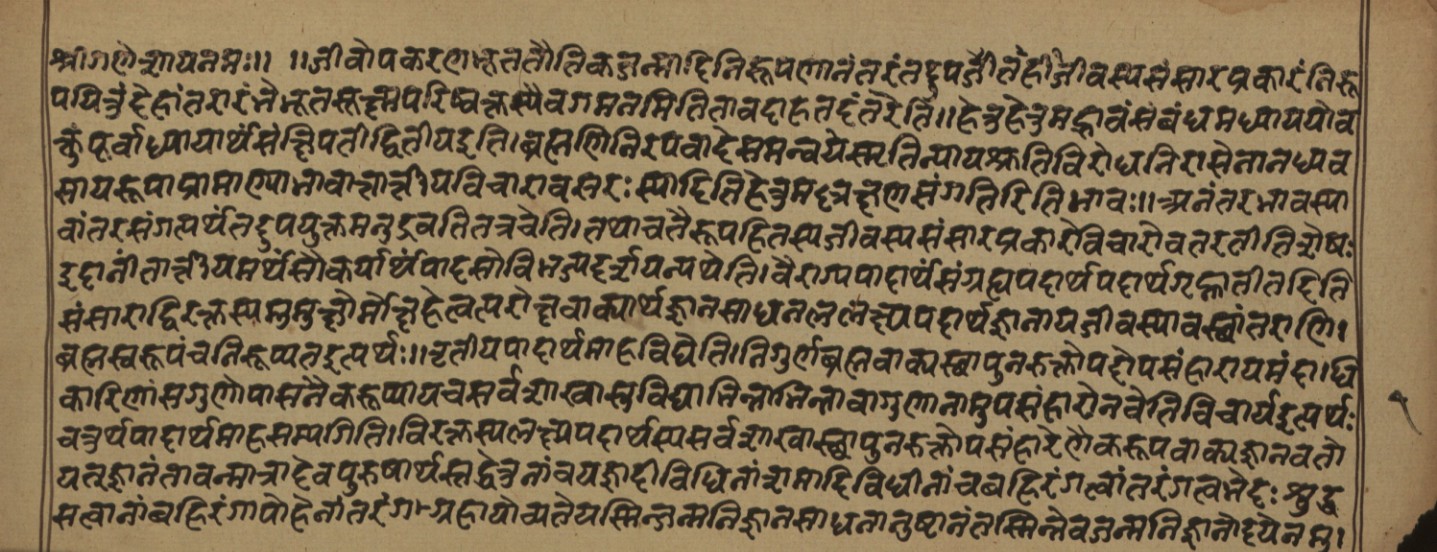 श्रीगणेशायनमः॥ ॥जीवोपकरणभूतभौतिकजन्मादिनिरूपणानंतरंतदुपजीतहीजीवस्यसंसारप्रकारंनिरू
पयितुंदेहांतरारंभेभूतसूक्ष्मपरिष्वक्तस्यैवगमनमितितावदाहतदंतरेति॥हेतुहेतुमद्भावंसंबंधमध्याययोव
क्तुंपूर्वाध्यायार्थंसंक्षिपतीद्वितीयइति।ब्रह्मणिनिरपवादेसमन्वयेस्मृतिन्यायश्रुतिविरोधनिरासेनानध्यव
सायरूपाप्रामाण्याभावात्तार्त्तीयविचारावसरःस्यादितिहेतुमद्रक्षणसंगतिरितिभावः॥अनंतरभावस्या
वांतरसंगत्यर्थंतदुपयुक्तमनुद्रवतितत्रचेति।तथाचतैरूपहितस्यजीवस्यसंसारप्रकारोविचारोवतरतीतिशेषः
इदानींतार्त्तीयमर्थंसौकर्यार्थंपादसोविभज्यदर्शयन्पथेति।वैराग्यपादार्थंसंग्रह्यपदार्थपदार्थगृह्णातीतदिति
संसाराद्विरक्तस्यमुमुक्षोर्मोक्षहेत्वत्परोक्षवाक्यार्थज्ञानसाधनललंक्ष्यपदार्थज्ञानायजीवस्यावस्थांतराणि।
ब्रह्मस्वरूपंचनिरूप्यतइत्यर्थः॥तृतीयपादार्थमाहविद्येति।निर्गुणब्रह्मवाक्यस्थापुनरुक्तोपदोपसंहारायमंदाधि
कारिणांसगुणोपासनैकरूप्यायचसर्वशाखासुविद्याभिन्नाभिन्नावागुणानामुपसंहारोनवेतिविचार्यइत्यर्थः
चतुर्थपादार्थमाहसम्यगिति।विरक्तस्यलक्ष्यपदार्थस्यसर्वशाखास्थापुनरुक्तोपसंहारेणैकरूपवाक्यज्ञानवतो
यतज्ञानंतावन्मात्रादेवपुरुषार्थस्तद्धेतुनांचयज्ञादीविधिनांशमादिविधीनांचबहिरंगत्वांतरंगत्वभेदः शुद्ध
सत्वानांबहिरंगापोहेनांतरंगाग्रहायोच्यतेयस्मिन्जन्मनिज्ञानसाधनानुष्टानंतस्मिन्नेवजन्मनिज्ञानोदयेनम।